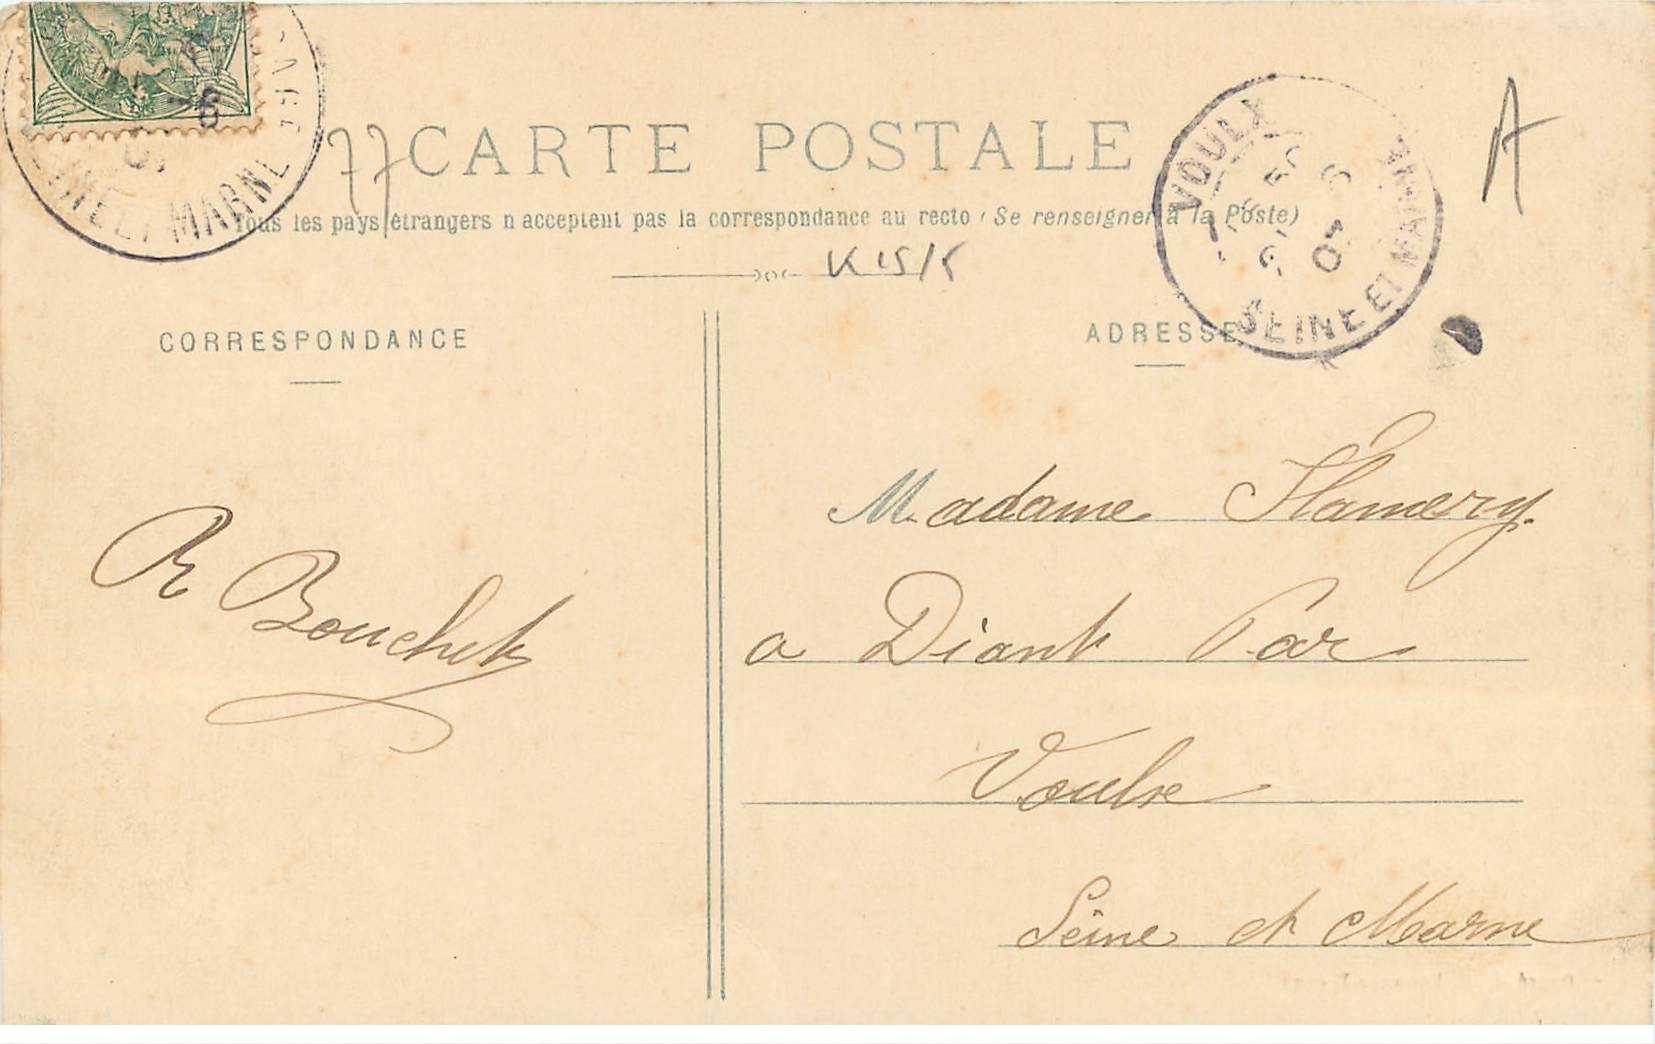 77 CARTE POSTALE
A
Tous les pays étrangers n'acceptent pas la correspondance au recto (Se renseigner à la Poste)
K 15/5
CORRESPONDANCE
ADRESSE
SEINE ET MARNE
VOULX
6
07
SEINE ET MARNE
Madame Flamery
a Diant Par
Voulx
Seine et Marne
R Bouchet